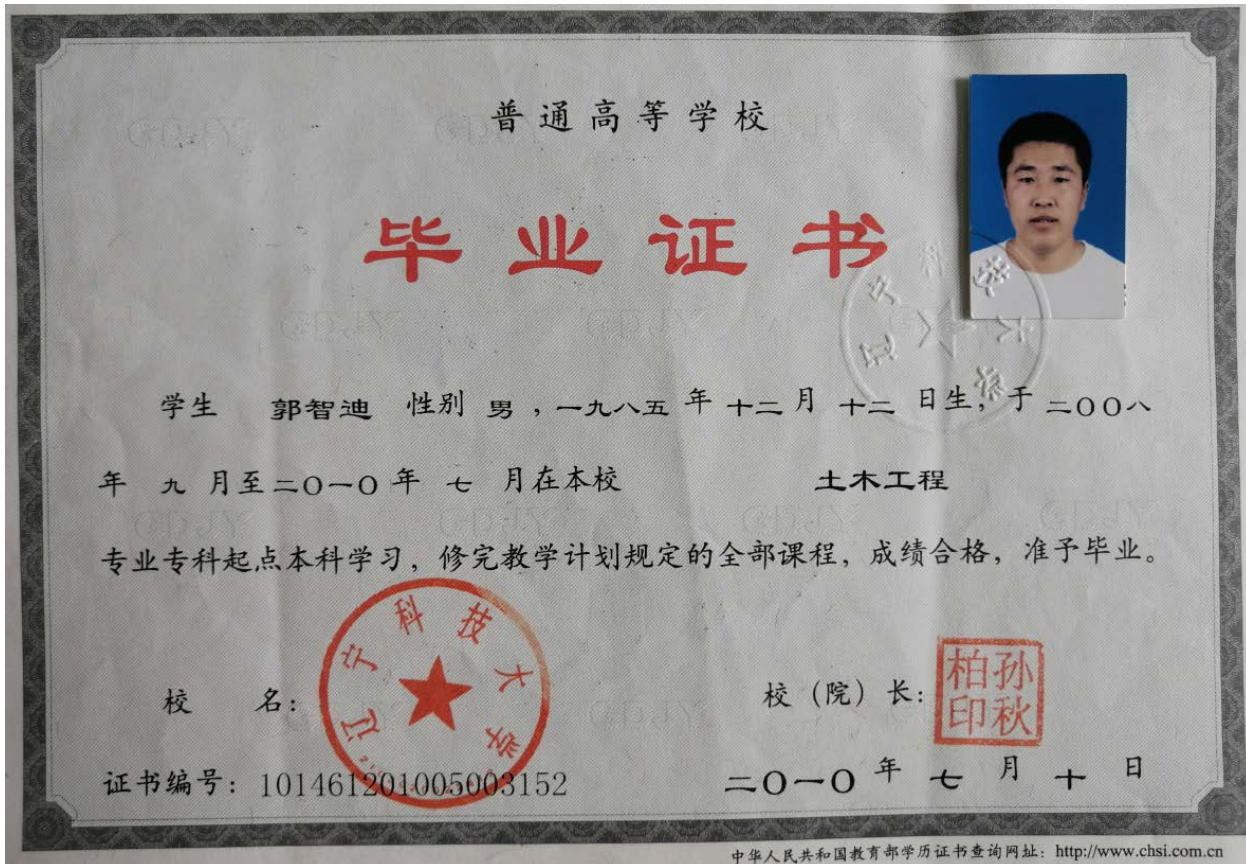 普通高等学校
毕业证书
学生 郭智迪 性别 男，一九八五 年 十二 月 十二 日生，于 二〇〇八
年 九 月至二〇一〇 年 七 月在本校 土木工程
专业专科起点本科学习，修完教学计划规定的全部课程，成绩合格，准予毕业。
校 名：
辽宁科技大学
校（院）长：
孙秋柏印
证书编号：101461201005003152
二〇一〇 年 七 月 十 日
中华人民共和国教育部学历证书查询网址：http://www.chsi.com.cn
辽宁科技大学
YLGD